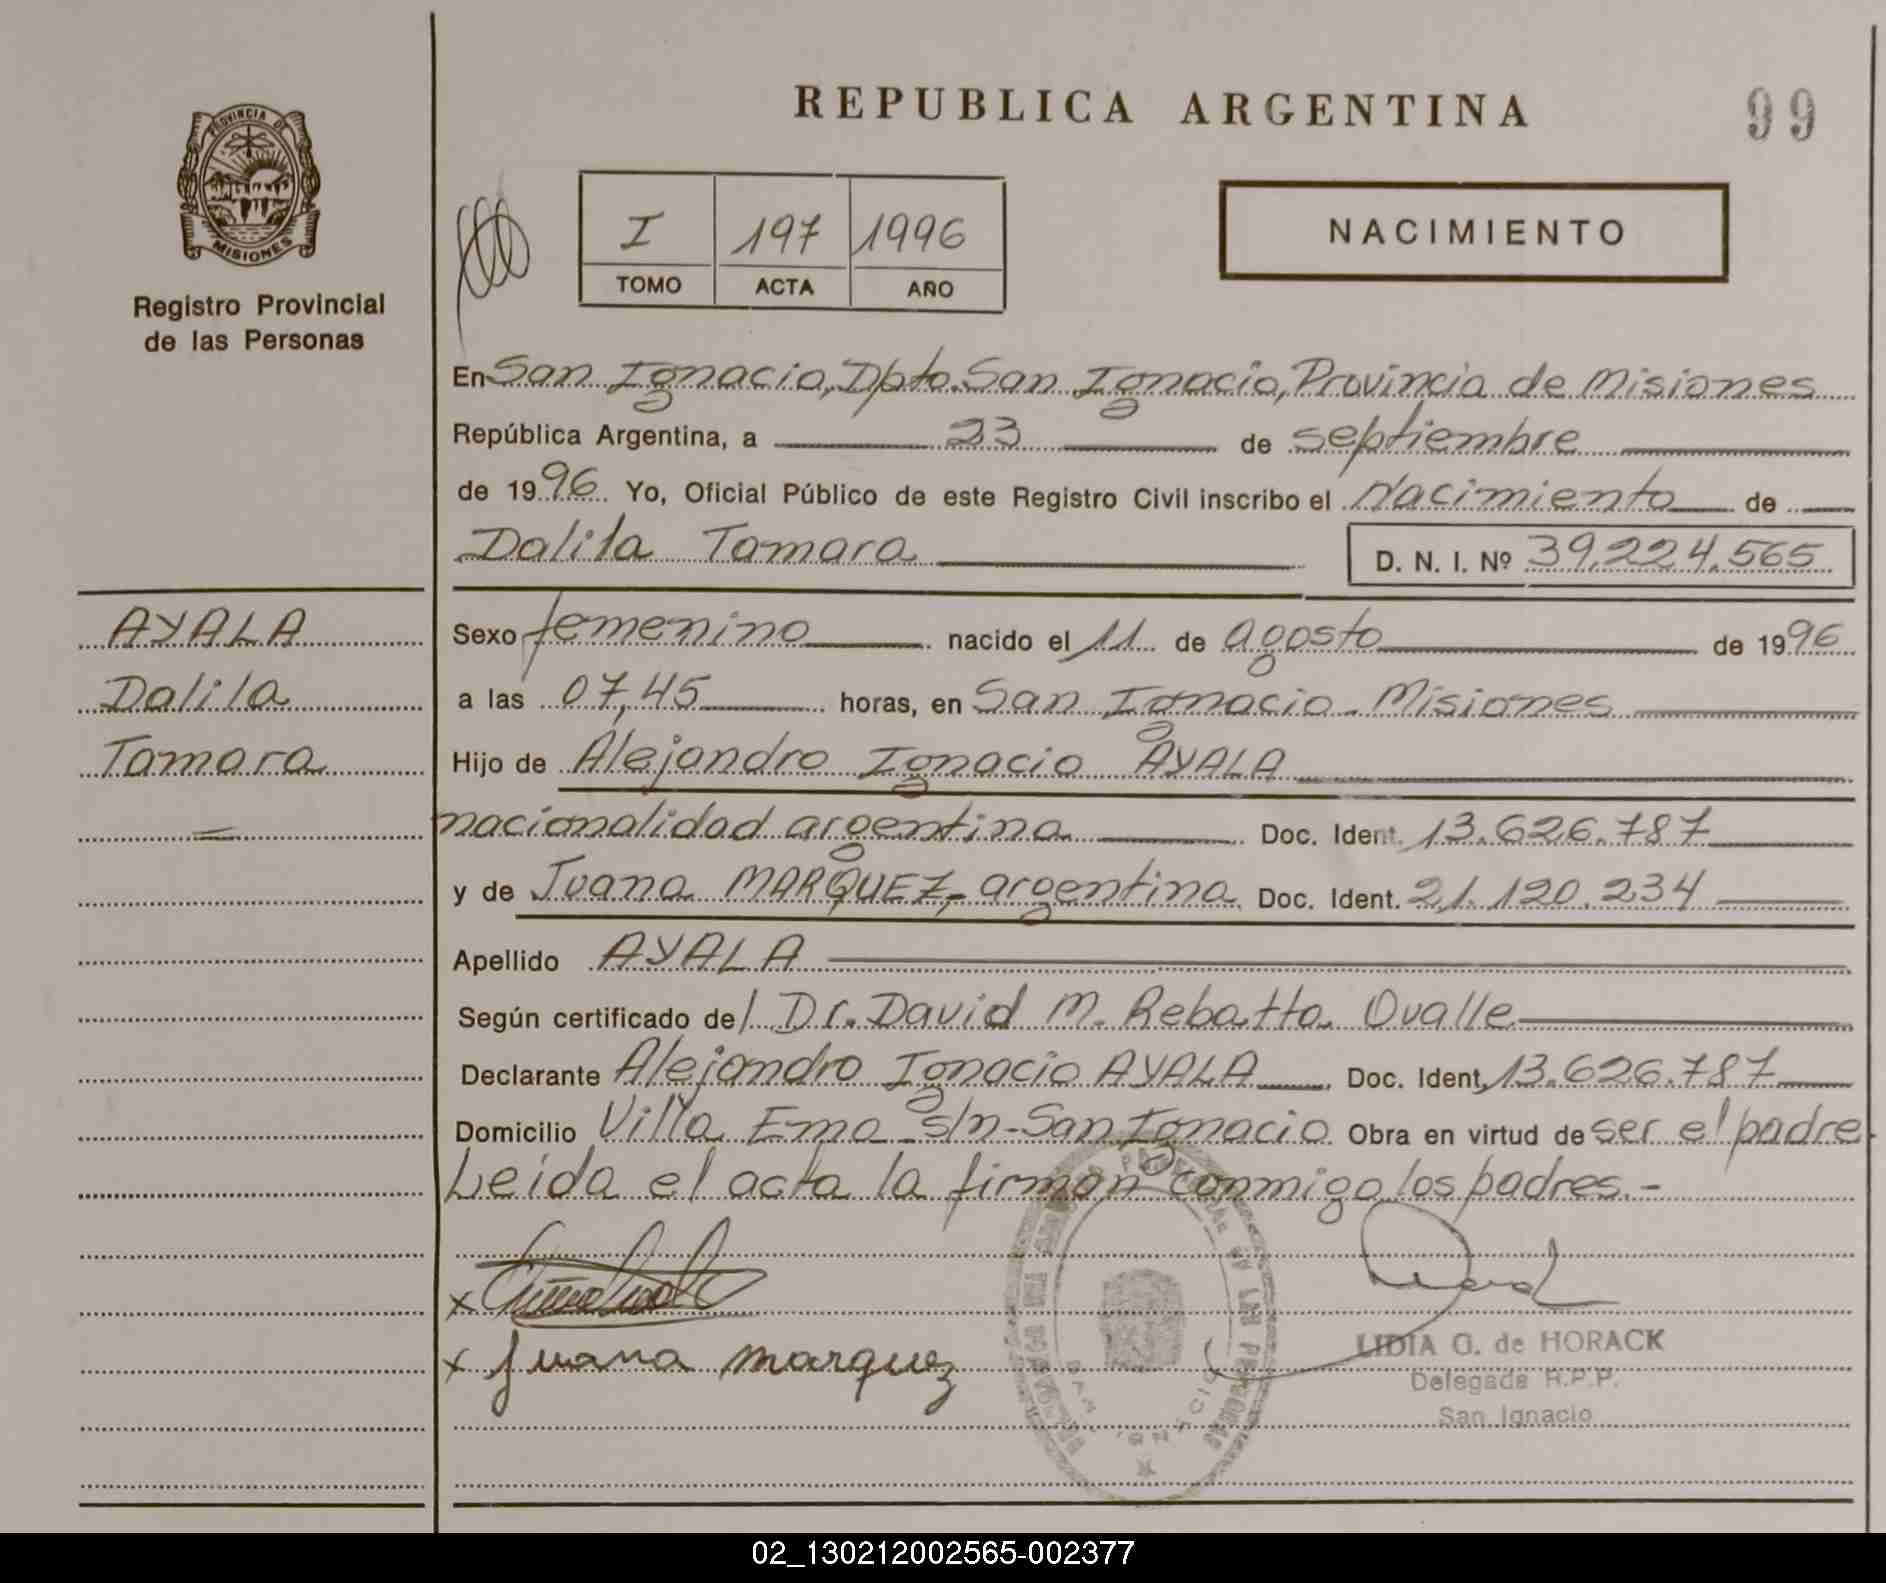 REPUBLICA ARGENTINA
99
PROVINCIA DE
MISIONES
Registro Provincial
de las Personas
I 197 1996
TOMO ACTA AÑO
NACIMIENTO
En San Ignacio, Dpto. San Ignacio, Provincia de Misiones
República Argentina, a 23 de septiembre
de 1996 Yo, Oficial Público de este Registro Civil inscribo el Nacimiento de
Dalila Tamara D. N. I. Nº 39.224.565
AYALA
Dalila
Tamara
Sexo femenino nacido el 11 de agosto de 1996
a las 07,45 horas, en San Ignacio - Misiones
Hijo de Alejandro Ignacio AYALA
nacionalidad argentina Doc. Ident. 13.626.787
y de Juana MARQUEZ,- argentina Doc. Ident. 21.120.234
Apellido AYALA
Según certificado de/ Dr. David M. Rebatta Ovalle
Declarante Alejandro Ignacio AYALA Doc. Ident. 13.626.787
Domicilio Villa Ema s/n - San Ignacio Obra en virtud de ser el padre.
Leida el acta la firman conmigo los padres.-
x
x Juana marquez
LIDIA G. de HORACK
Delegada R.P.P.
San Ignacio
02_130212002565-002377